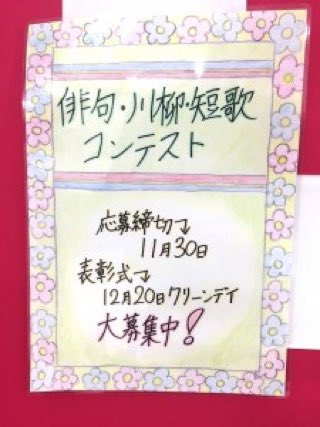 俳句・川柳・短歌
コンテスト
応募締切↴
11月30日
表彰式↴
12月20日クリーンデイ
大募集中!